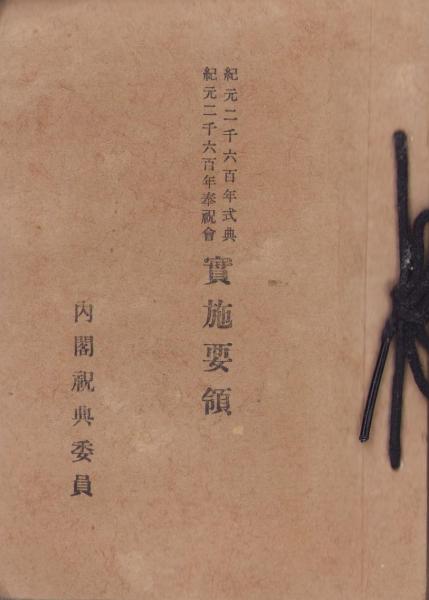 紀元二千六百年式典
紀元二千六百年奉祝會
實施要領
內閣祝典委員